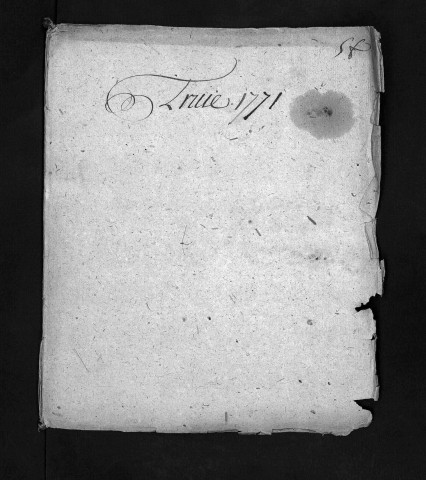 Truie 1771